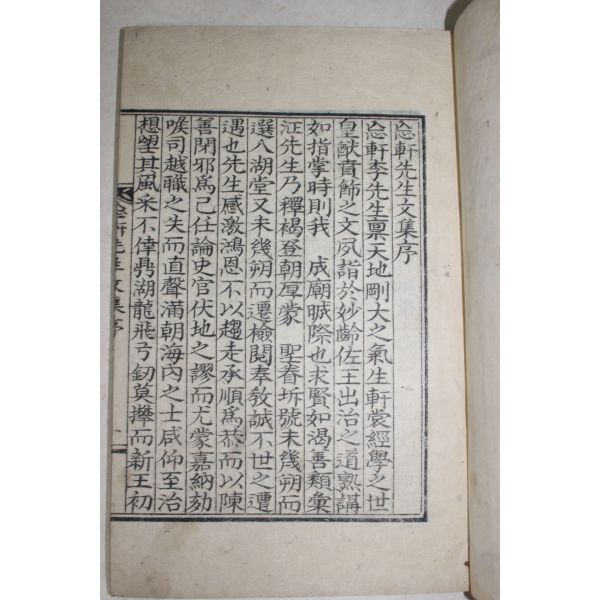 忩軒先生文集序
忩軒李先生稟天地剛大之氣生軒裳經學之世
皇猷賁飾之文夙詣於妙齡佐王出治之道熟講
如指掌時則我 成廟晠際也求賢如渴善類彙
征先生乃釋褐登朝厚蒙 聖眷坼號未幾朔而
選入湖堂又未幾朔而遷檢閱奉敎誠不世之遭
遇也先生感激鴻恩不以趨走承順爲恭而以陳
善閉邪爲己任論史官伏地之謬而尤蒙嘉納劾
喉司越職之失而直聲滿朝海內之士咸仰至治
想望其風采不倖鼎湖龍飛弓釼莫攀而新王初
忩軒先生文集序 一